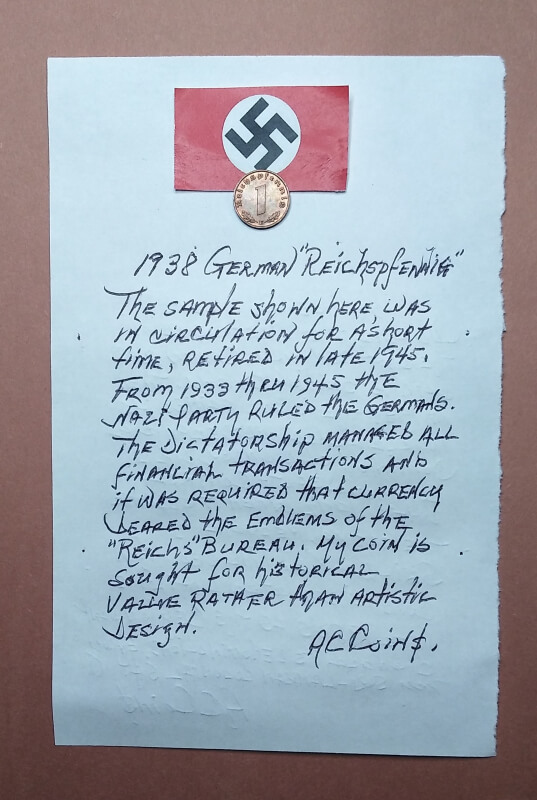 Reichspfennig
1
1938 GERMAN "REICHSPFENNIG"
THE SAMPLE SHOWN HERE WAS
IN CIRCULATION FOR A SHORT
TIME, RETIRED IN LATE 1945.
FROM 1933 THRU 1945 THE
NAZI PARTY RULED THE GERMANS.
THE DICTATORSHIP MANAGED ALL
FINANCIAL TRANSACTIONS AND
IT WAS REQUIRED THAT CURRENCY
BEARED THE EMBLEMS OF THE
"REICHS" BUREAU. MY COIN IS
SOUGHT FOR HISTORICAL
VALUE RATHER THAN ARTISTIC
DESIGN.
AC COIN$.